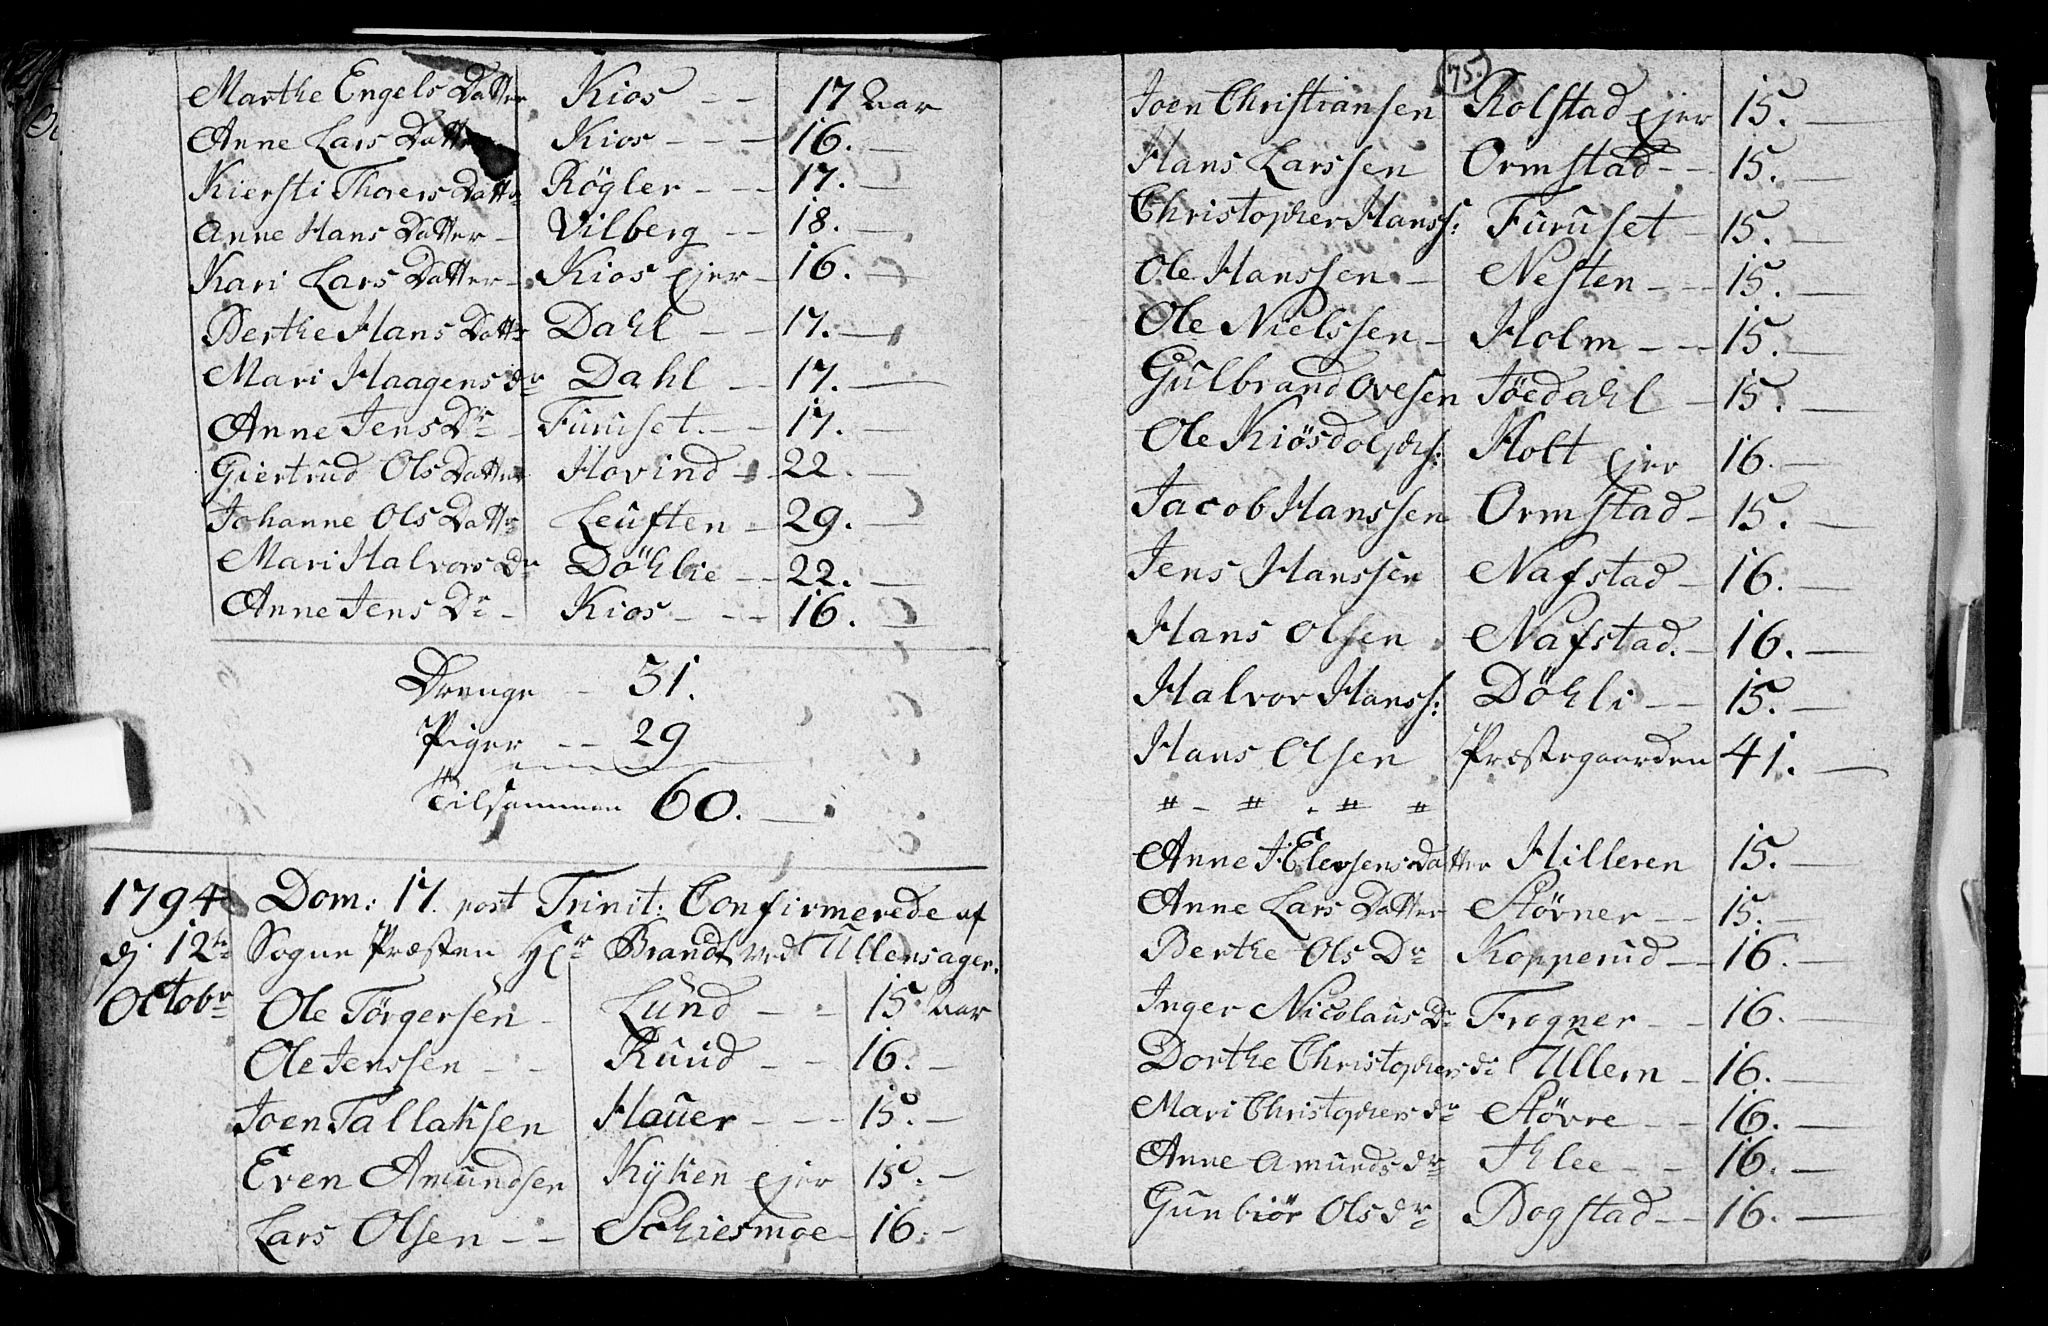 Marthe Engels Datter Kios - - 17 Aar
Anne Lars Datter Kios - - - 16. -
Kiersti Thorers Datter Røgler - - - 17. -
Anne Hans Datter - Vilberg - - 18. -
Kari Lars Datter - Kios Ejer - 16. -
Berthe Hans Datter Dahl - - 17. -
Mari Haagens dr Dahl - 17. -
Anne Jens Dr - Furuset. - - 17. -
Giertrud Ols Datter Hovind - 22. -
Johanne Ols Datter Leuften - 29. -
Mari Halvors Dr Döhlie - - 22. -
Anne Jens Dr - Kios - - - 16. -
Drenge - 31.
Piger - - 29
Tilsammen 60. -
1794 Dom: 17. post Trinit: Confirmerede af
dj 12te Sogne Præsten Hr Brandt ved Ullensager.
Octobr Ole Törgersen - Lund - - 15 Aar
Ole Jenssen - - Ruud - - 16. -
Joen Tallaksen Hauer - - - 15. -
Even Amundsen Kÿken Ejer 15. -
Lars Olsen - - Schiesmoe - 16. -
75.
Joen Christiansen Rolstad Ejer 15. -
Hans Larssen Ormstad - - 15. -
Christopher Hanss: Furuset - 15. -
Ole Hanssen - Nesten - - 15. -
Ole Nielssen - Holm - - - 15. -
Gulbrand Ovesen Jöedahl - 15. -
Ole Kiösdolphs: Holt Ejer 16. -
Jacob Hanssen Ormstad - 15. -
Jens Hanssen Nafstad - 16. -
Hans Olsen Nafstad. - 16. -
Halvor Hanss: Döhli - - 15. -
Hans Olsen Præstegaarden 41. -
" - " . " "
Anne Elevsens Datter Hilleren 15. -
Anne Lars Datter Støvner - - 15. -
Berthe Ols Dr Kopperud - - 16. -
Inger Nicolaus Dr Frogner - - 16. -
Dorthe Christophers dr Ullern - 16. -
Mari Christophers dr Støvre - - 16. -
Anne Amunds dr Thlee - - 16. -
Gunbiör Ols dr Bogstad - - 16. -